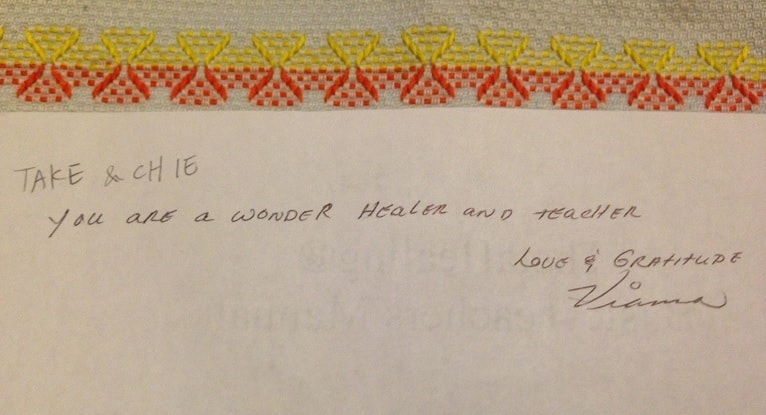 TAKE & CHIE
YOU ARE a WONDER HEALER AND TEACHER
LOVE & GRATITUDE
Vianna